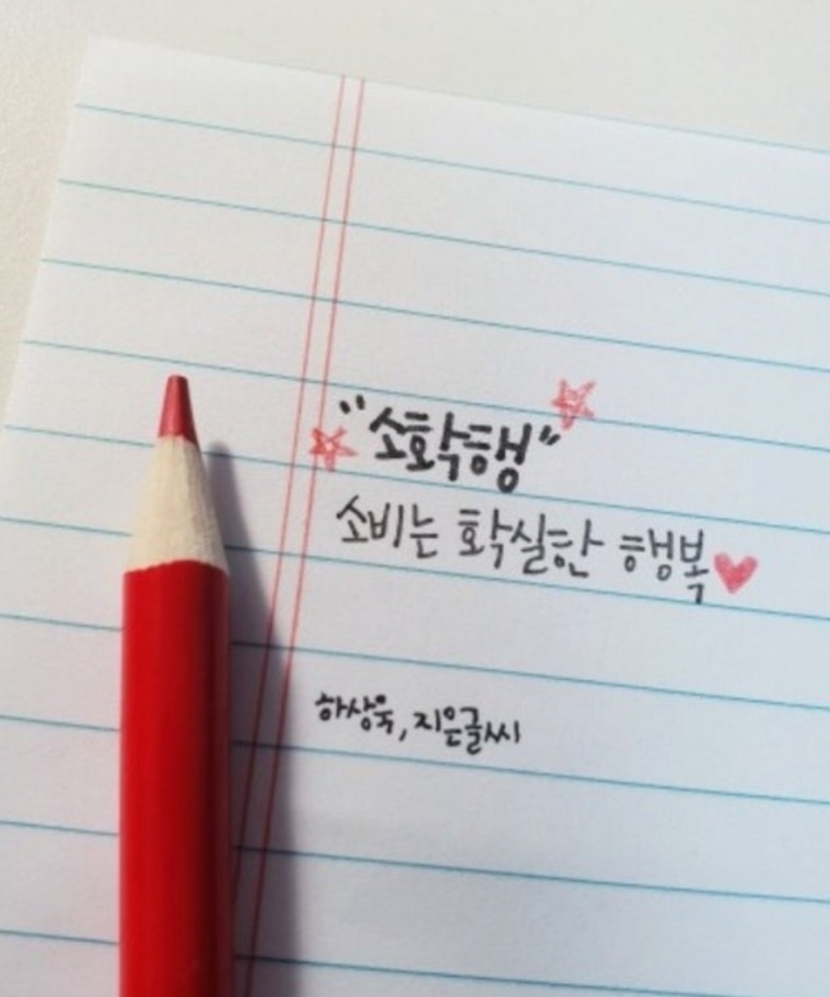 "소확행"
소비는 확실한 행복
하상욱, 지은글씨